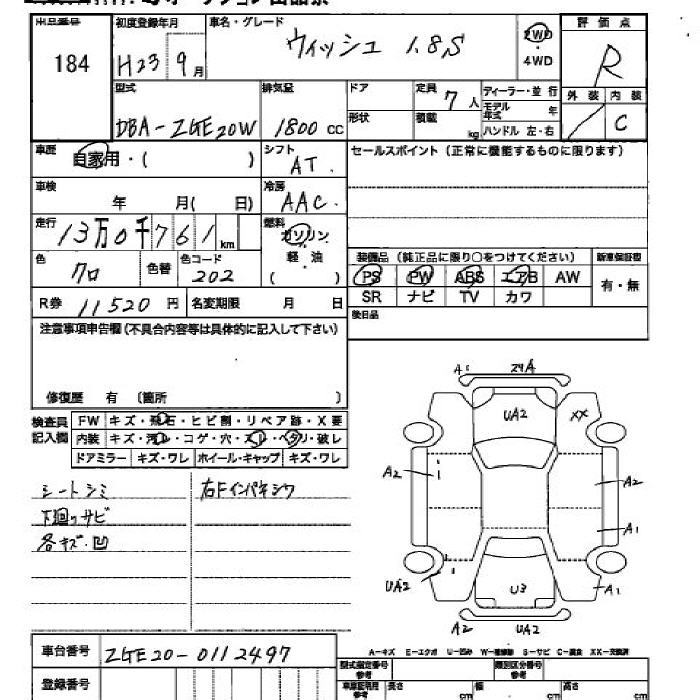 出品番号
184
初度登録年月
H23 9月
車名・グレード
ウィッシュ 1.8S
2WD
・
4WD
評価点
R
外装 内装
/ C
型式
DBA-ZGE20W
排気量
1800 CC
ドア
形状
定員
7人
積載
kg
ディーラー・並行
モデル
年式 年
ハンドル 左・右
車歴
自家用・( )
シフト
AT.
セールスポイント(正常に機能するものに限ります)
車検
年 月( 日)
冷房
AAC.
走行
13万0千761km
燃料
ガソリン
軽・油
( )
色
クロ
色替
色コード
202
装備品(純正品に限り○をつけてください)
新車保証書
PS PW ABS エアB AW
有・無
SR ナビ TV カワ
後日品
R券 11520円
名変期限 月 日
注意事項申告欄(不具合内容等は具体的に記入して下さい)
修復歴 有 (箇所 )
検査員
記入欄
FW キズ・飛石・ヒビ割・リペア跡・X要
内装 キズ・汚レ・コゲ・穴・スレ・ヘタリ・破レ
ドアミラー キズ・ワレ ホイール・キャップ キズ・ワレ
シートシミ
下廻りサビ
各キズ・凹
右Fインパネシワ
A1 24A
UA2 XX
A2 A2
A1
UA2 U3 A1
A2 UA2
A-キズ E-エクボ U-凹み W-補修跡 S-サビ C-腐食 XX-交換済
車台番号
ZGE20-0112497
登録番号
型式指定番号
参考
類別区分番号
参考
車庫証明用
参考
長さ cm
幅 cm
高さ cm